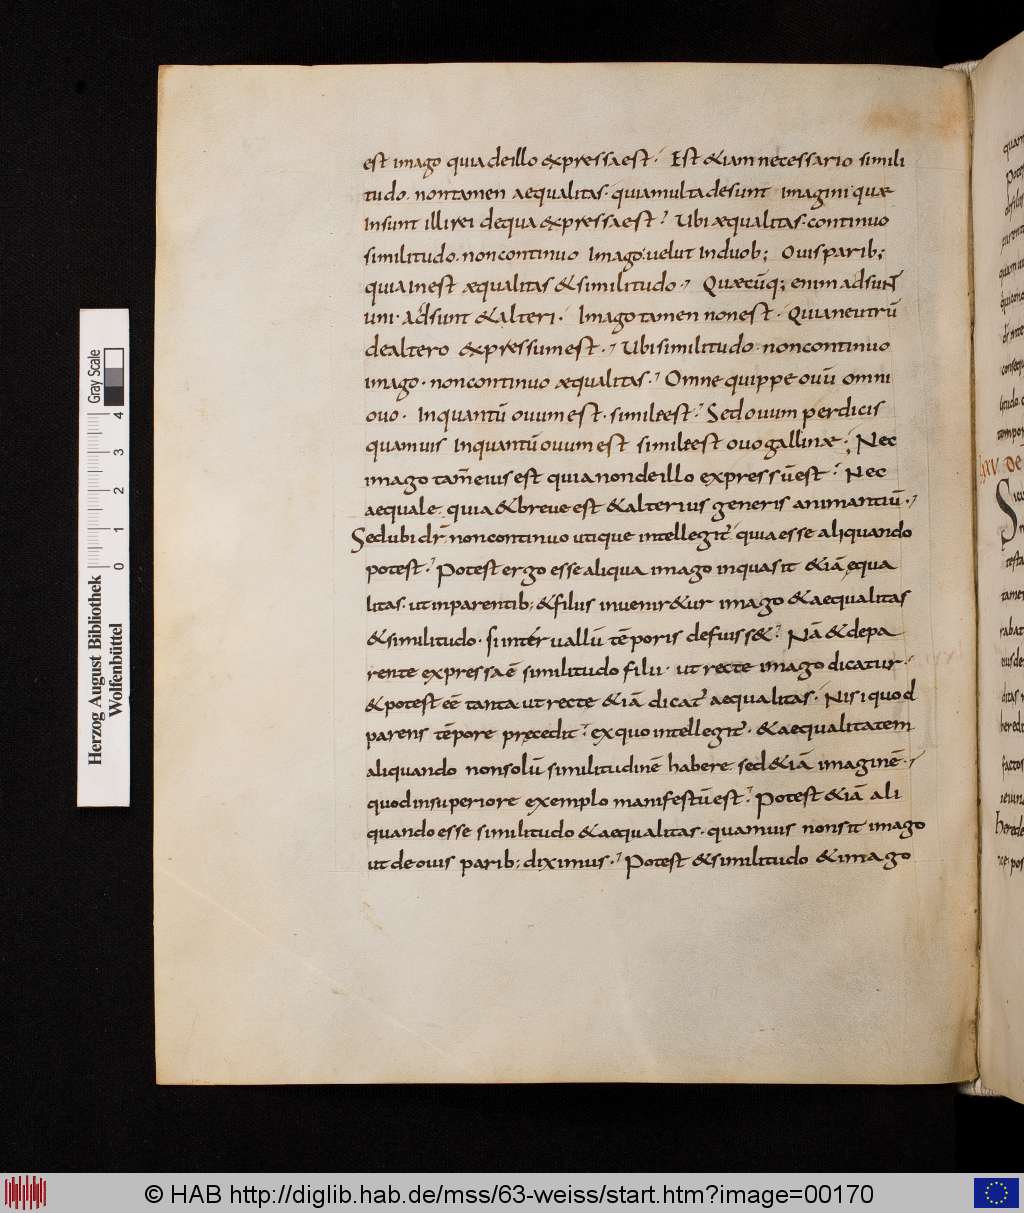 est imago quia deillo expressa est· Est &iam necessario simili
tudo· non tamen aequalitas· quia multa desunt imagini quae
Insunt illi rei dequa expressa est; Ubi aequalitas· continuo
similitudo· non continuo Imago· uelut Induob; Ouis parib;
quia Inest aequalitas & similitudo· Quaecūq; enim adsunt
uni· adsunt & alteri· Imago tamen non est· Quia neutrū
dealtero expressum est· Ubi similitudo· non continuo
imago· non continuo aequalitas· Omne quippe ouū omni
ouo· Inquantū ouum est· simile est· Sed ouum perdicis
quamuis Inquantū ouum est simile est ouo gallinae; Nec
imago tam̄ eius est quia non deillo expressū est· Nec
aequale quia & breue est & alterius generis animantiū·
Sed ubi dr̄ non continuo utique intellegit̄ quia esse aliquando
potest· Potest ergo esse aliqua imago inqua sit &iā ęqua
litas· ut inparentib; & filiis inuenir&ur imago & aequalitas
& similitudo· si interuallū tēporis defuiss&· Nā & depa
rente expressa ē similitudo filii· ut recte imago dicatur·
& potest eē tanta ut recte &iā dicat̄ aequalitas· Nisi quod
parens tēpore pręcedit· ex quo intellegit̄· & aequalitatem
aliquando non solū similitudinē habere sed &iā imaginē·
quod insuperiore exemplo manifestū est· Potest &iā ali
quando esse similitudo & aequalitas· quamuis non sit imago
ut de ouis parib; diximus· Potest & similitudo & imago
Herzog August Bibliothek
Wolfenbüttel
Gray Scale
0 1 2 3 4
© HAB http://diglib.hab.de/mss/63-weiss/start.htm?image=00170